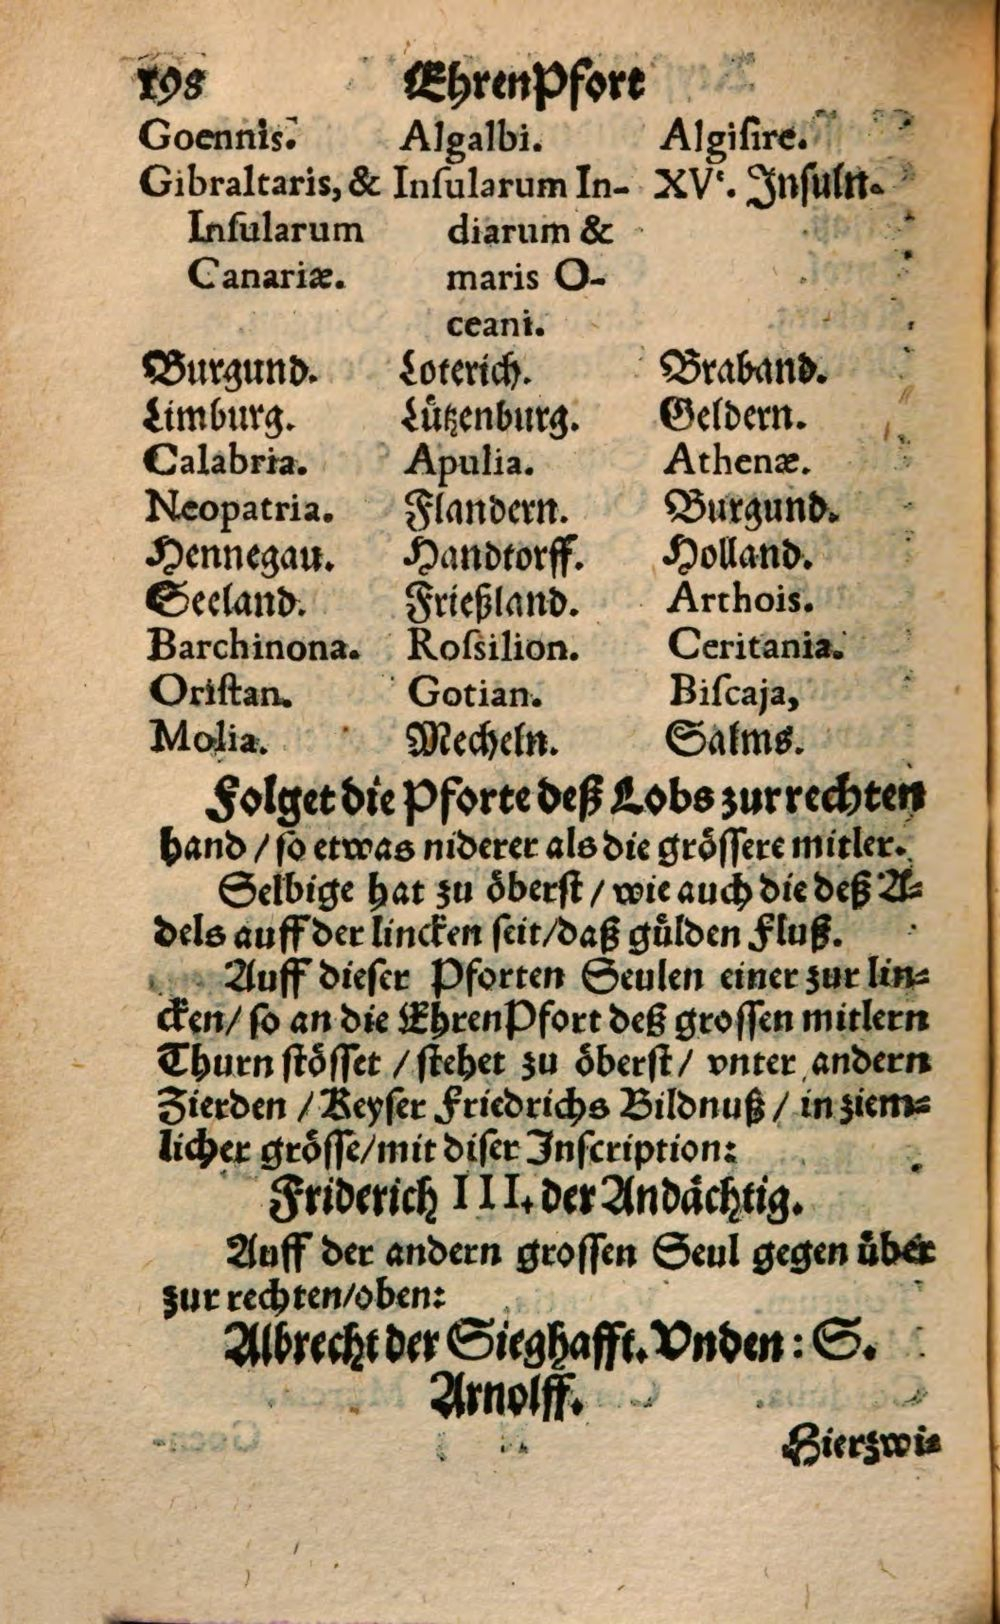 198 EhrenPfort
Goennis. Algalbi. Algiſire.
Gibraltaris, & Inſularum In- XVᶜ. Inſuln.
Inſularum diarum &
Canariæ. maris O-
ceani.
Burgund. Loterich. Braband.
Limburg. Lützenburg. Geldern.
Calabria. Apulia. Athenæ.
Neopatria. Flandern. Burgund.
Hennegau. Handtorff. Holland.
Seeland. Frießland. Arthois.
Barchinona. Roſsilion. Ceritania.
Oriſtan. Gotian. Biſcaja,
Molia. Mecheln. Salms.
Folget die Pforte deß Lobs zur rechten
hand / ſo etwas niderer als die gröſſere mitler.
Selbige hat zu öberſt / wie auch die deß A-
dels auff der lincken ſeit/daß gülden Fluß.
Auff dieſer Pforten Seulen einer zur lin-
cken/ ſo an die EhrenPfort deß groſſen mitlern
Thurn ſtöſſet / ſtehet zu öberſt / vnter andern
Zierden / Keyſer Friedrichs Bildnuß / in ziem-
licher gröſſe/mit diſer Inſcription:
Friderich III. der Andächtig.
Auff der andern groſſen Seul gegen über
zur rechten/oben:
Albrecht der Sieghafft. Vnden: S.
Arnolff.
Hierzwi-